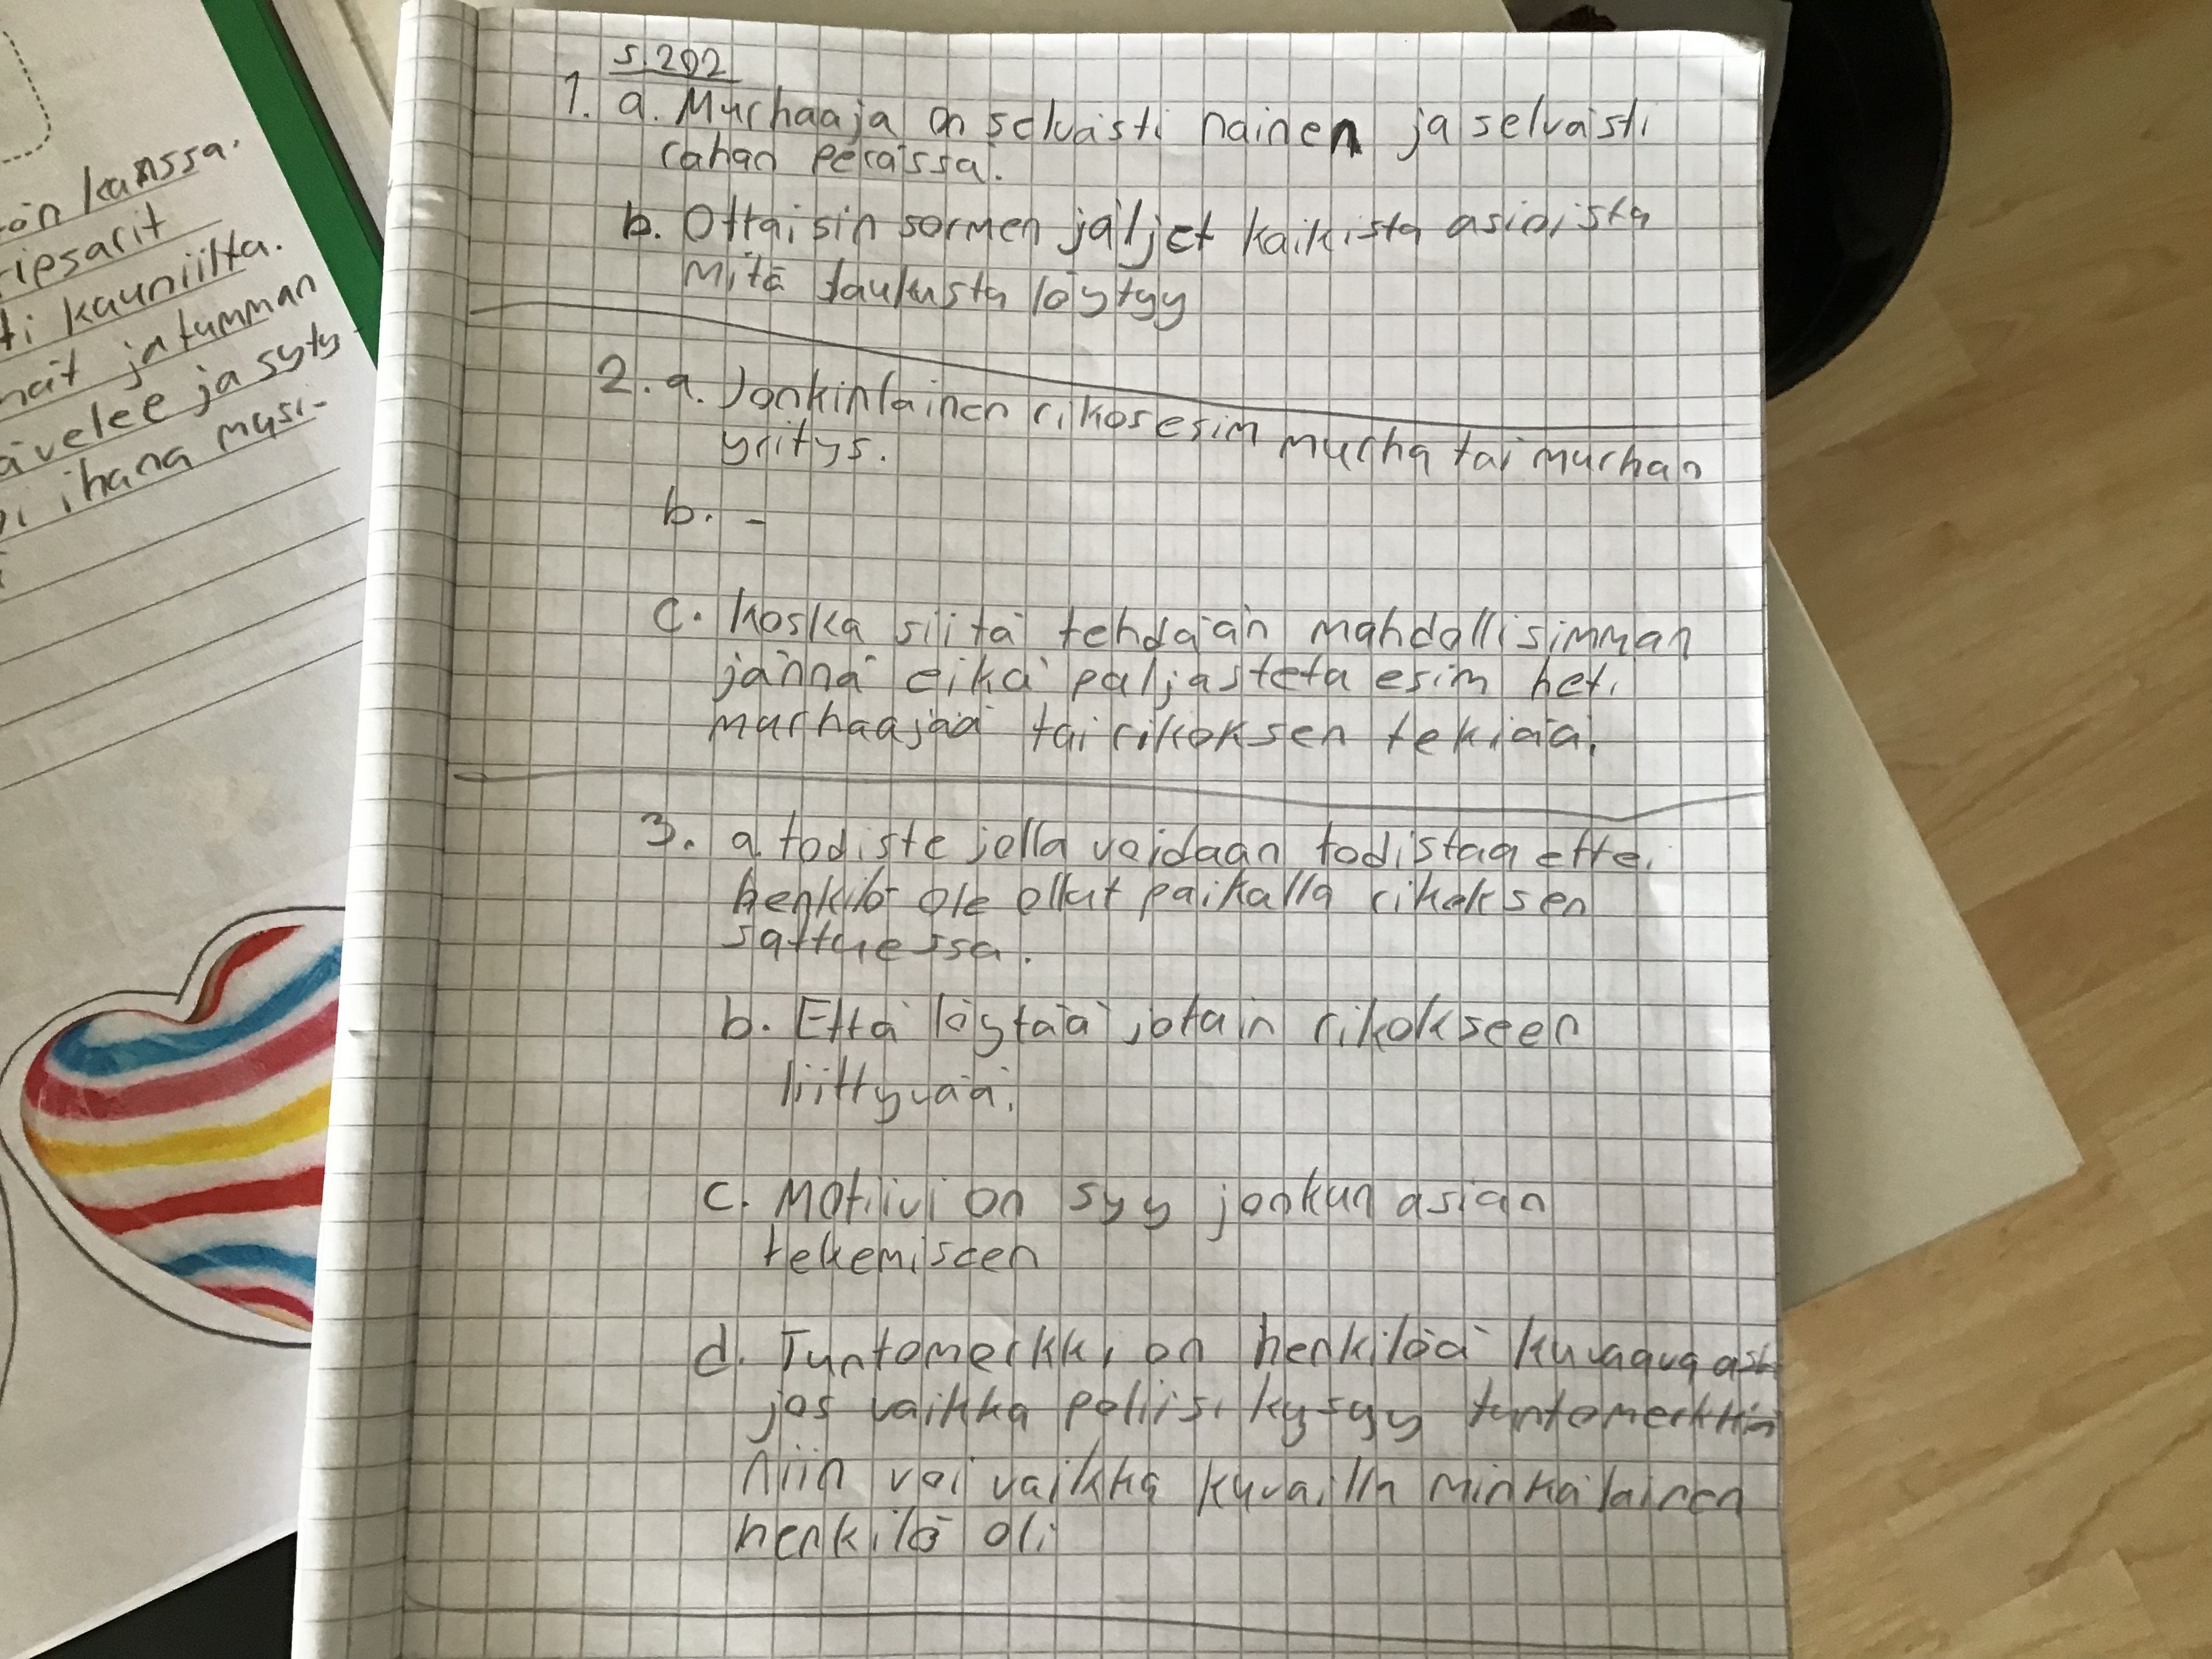 ön kanssa.
ripsarit
ti kauniilta.
nait ja tumman
ävelee ja syty
ihana musi-
s.202
1. a. Murhaaja on selvästi nainen ja selvästi
rahan perässä.
b. Ottaisin sormen jäljet kaikista asioista
Mitä taulusta löytyy
2. a. Jonkinlainen rikos esim murha tai murhan
yritys.
b. -
c. koska siitä tehdään mahdollisimman
jännä eikä paljasteta esim heti
murhaajaa tai rikoksen tekiää.
3. a. todiste jolla voidaan todistaa ettei
henkilö ole ollut paikalla rikoksen
sattuessa.
b. Että löytää jotain rikokseen
liittyvää.
c. Motiivi on syy jonkun asian
tekemiseen
d. Tuntomerkki on henkilöä kuvaava asi
jos vaikka poliisi kysyy tuntomerkkiä
niin voi vaikka kuvailla minkälainen
henkilö oli